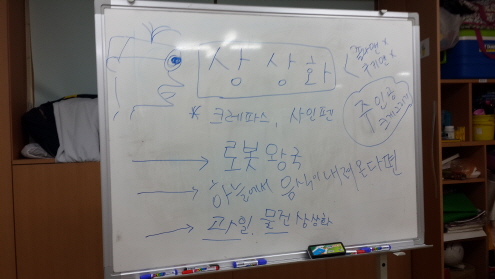 상상화
* 크레파스, 사인펜
주인공
크게 그리기
→ 로봇왕국
→ 하늘에서 음식이 내려온다면
→ 과일, 물건 상상화